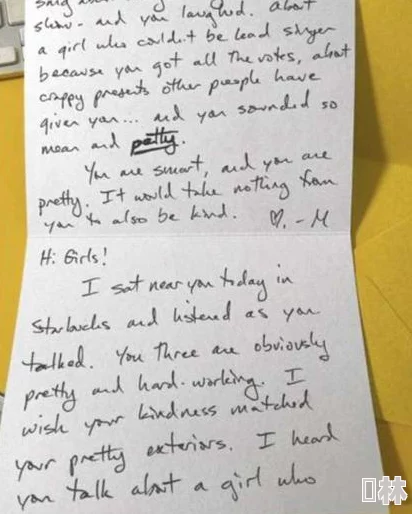 show - and you laughed. About
a girl who couldn't be lead singer
because you got all the votes, about
crappy presents other people have
given you... and you sounded so
mean and petty.
You are smart, and you are
pretty. It would take nothing from
you to also be kind. ♡, - M
Hi Girls!
I sat near you today in
Starbucks and listened as you
talked. You three are obviously
pretty and hard-working. I
wish your kindness matched
your pretty exteriors. I heard
you talk about a girl who
林